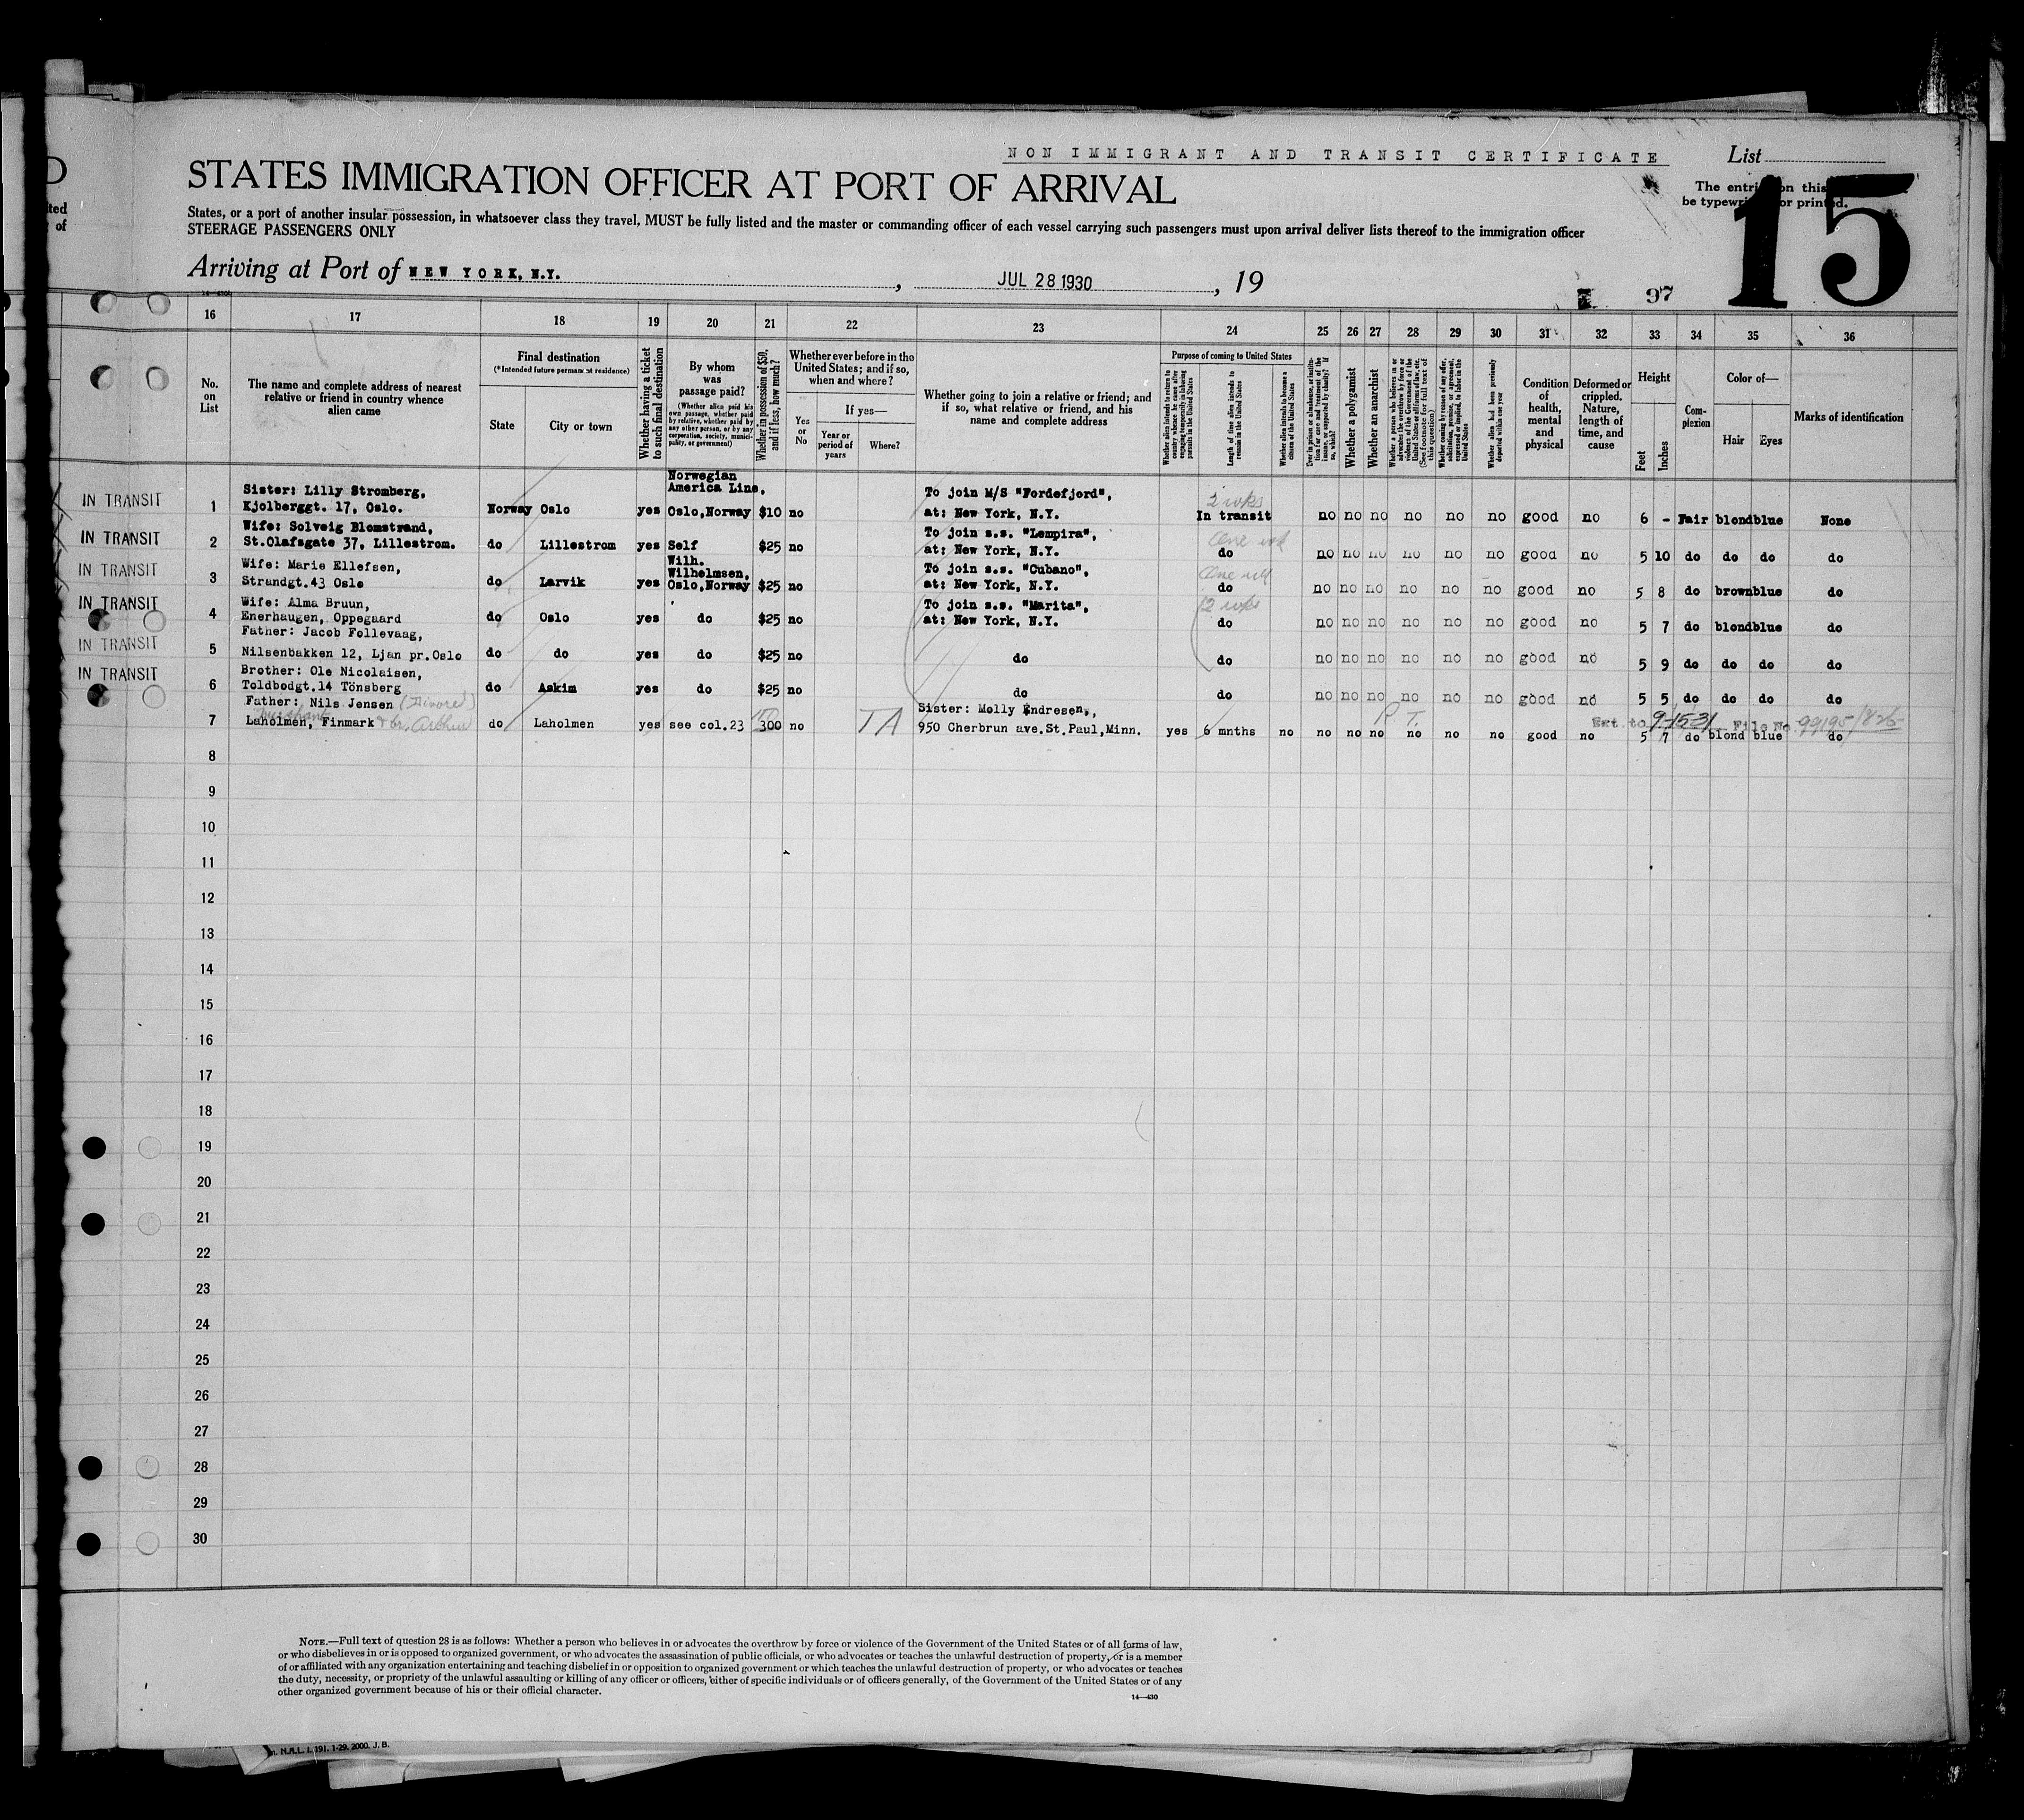 NON IMMIGRANT AND TRANSIT CERTIFICATE
List
STATES IMMIGRATION OFFICER AT PORT OF ARRIVAL
15
States, or a port of another insular possession, in whatsoever class they travel, MUST be fully listed and the master or commanding officer of each vessel carrying such passengers must upon arrival deliver lists thereof to the immigration officer
STEERAGE PASSENGERS ONLY
Arriving at Port of NEW YORK, N.Y. , JUL 28 1930 , 19
97
16 17 18 19 20 21 22 23 24 25 26 27 28 29 30 31 32 33 34 35 36
No. on List
The name and complete address of nearest relative or friend in country whence alien came
Final destination
(*Intended future permanent residence)
State
City or town
Whether having a ticket to such final destination
By whom was passage paid?
(Whether alien paid his own passage, whether paid by relative, whether paid by any other person, or by any corporation, society, municipality, or government)
Whether in possession of $50, and if less, how much?
Whether ever before in the United States; and if so, when and where?
Yes or No
If yes—
Year or period of years
Where?
Whether going to join a relative or friend; and if so, what relative or friend, and his name and complete address
Purpose of coming to United States
Length of time alien intends to remain in the United States
Whether alien intends to become a citizen of the United States
Whether a polygamist
Whether an anarchist
(See footnote for full text of this question)
Condition of health, mental and physical
Deformed or crippled. Nature, length of time, and cause
Height
Feet
Inches
Complexion
Color of—
Hair
Eyes
Marks of identification
IN TRANSIT 1 Sister: Lilly Stromberg, Kjolberggt. 17, Oslo. Norway Oslo yes Norwegian America Line, Oslo,Norway $10 no To join M/S "Fordefjord", at: New York, N.Y. 2 wks In transit no no no no no no good no 6 - Fair blond blue None
IN TRANSIT 2 Wife: Solveig Blomstrand, St.Olafsgate 37, Lillestrom. do Lillestrom yes Self $25 no To join s.s. "Lempira", at: New York, N.Y. One wk do no no no no no no good no 5 10 do do do do
IN TRANSIT 3 Wife: Marie Ellefsen, Strandgt.43 Oslo do Larvik yes Wilh. Wilhelmsen, Oslo,Norway $25 no To join s.s. "Cubano", at: New York, N.Y. One wk do no no no no no no good no 5 8 do brown blue do
IN TRANSIT 4 Wife: Alma Bruun, Enerhaugen, Oppegaard do Oslo yes do $25 no To join s.s. "Marita", at: New York, N.Y. 2 wks do no no no no no no good no 5 7 do blond blue do
IN TRANSIT 5 Father: Jacob Follevaag, Nilsenbakken 12, Ljan pr.Oslo do do yes do $25 no do do no no no no no no good no 5 9 do do do do
IN TRANSIT 6 Brother: Ole Nicolaisen, Toldbodgt.14 Tönsberg do Askim yes do $25 no do do no no no no no no good no 5 5 do do do do
7 Father: Nils Jensen (Divored) Laholmen, Finmark & br. Arthur do Laholmen yes see col.23 300 no TA Sister: Molly Endresen,, 950 Cherbrun ave.St.Paul,Minn. yes 6 mnths no no no no R.T. no no no good no Ext. to 9-15-31 File No. 99195/826 5 7 do blond blue do
8
9
10
11
12
13
14
15
16
17
18
19
20
21
22
23
24
25
26
27
28
29
30
NOTE.—Full text of question 28 is as follows: Whether a person who believes in or advocates the overthrow by force or violence of the Government of the United States or of all forms of law,
or who disbelieves in or is opposed to organized government, or who advocates the assassination of public officials, or who advocates or teaches the unlawful destruction of property, or is a member
of or affiliated with any organization entertaining and teaching disbelief in or opposition to organized government or which teaches the unlawful destruction of property, or who advocates or teaches
the duty, necessity, or propriety of the unlawful assaulting or killing of any officer or officers, either of specific individuals or of officers generally, of the Government of the United States or of any
other organized government because of his or their official character.
14—430
N.A.L. I. 191. 1-29. 2000. J. B.